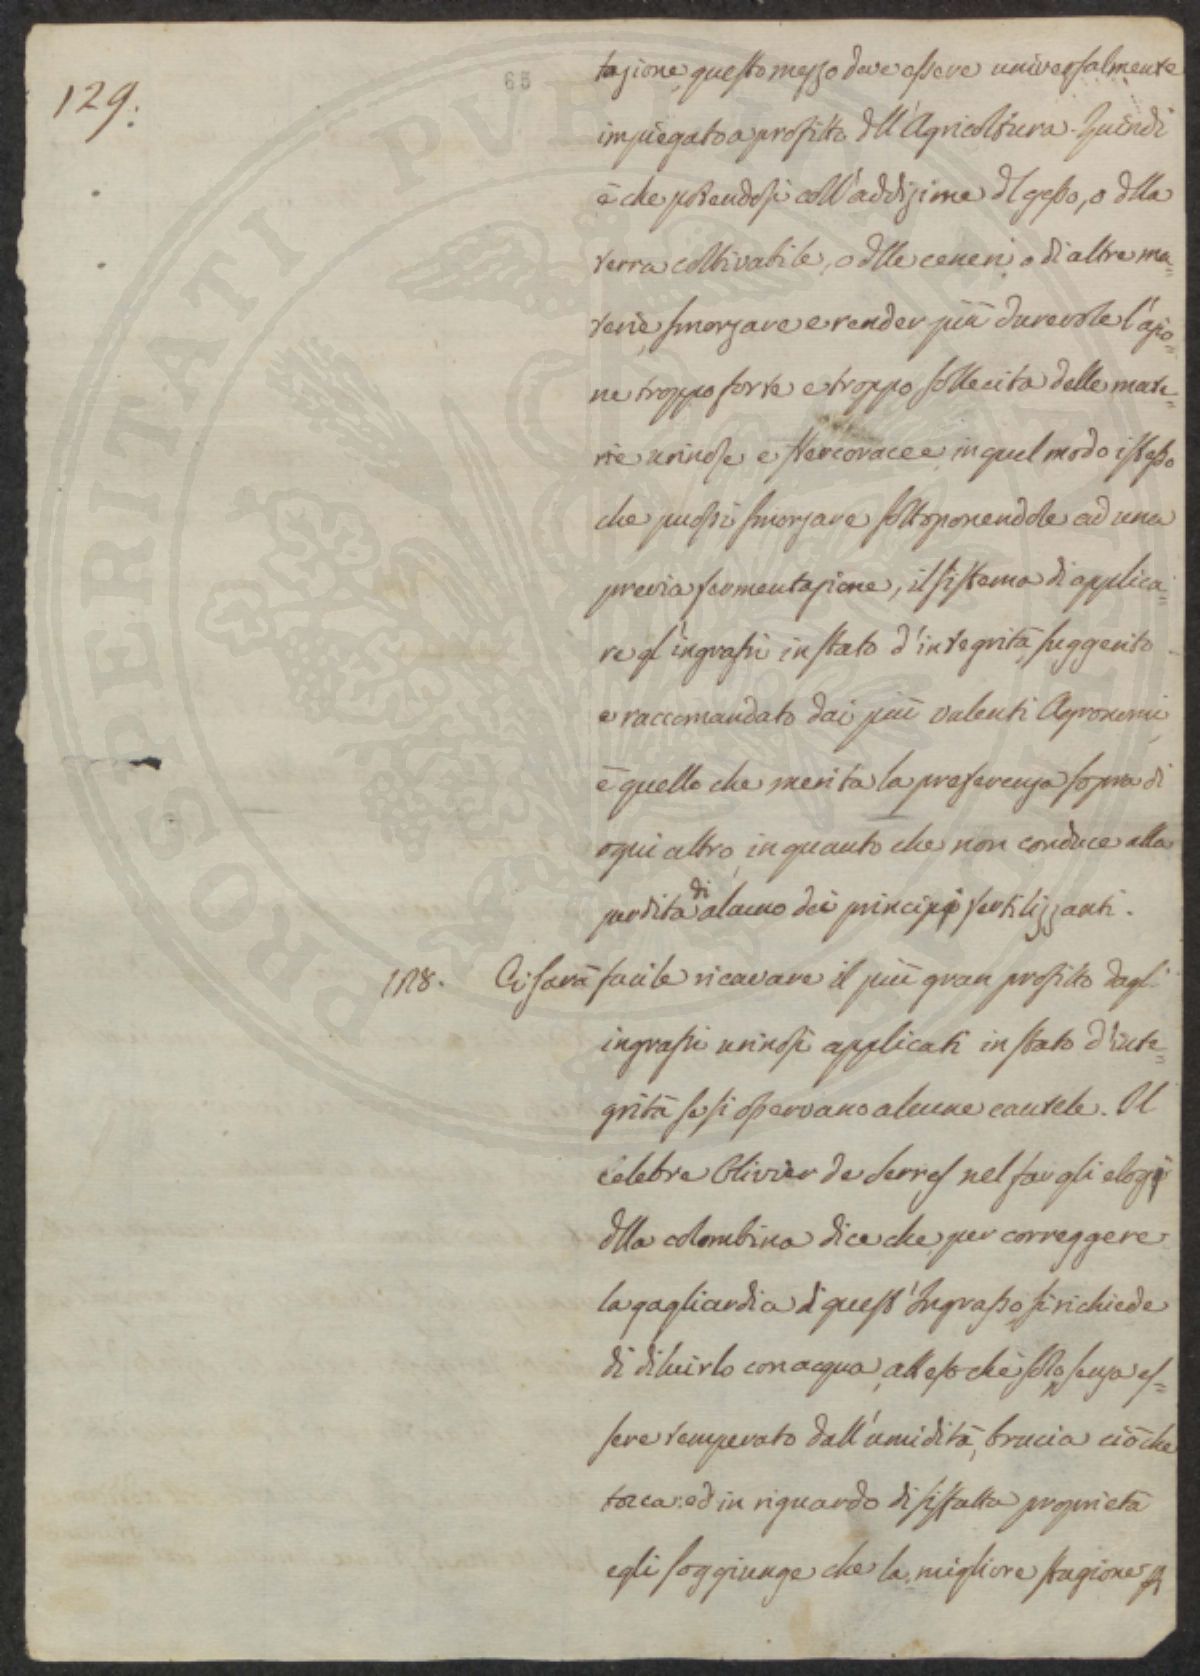 65
129.
tazione, questo mezzo deve essere universalmente
impiegato a profitto dll'Agricoltura. Quindi
è che potendosi coll'addizione dl gesso, o dlla
terra coltivabile, o dlle ceneri o di altre ma=
terie, smorzare e render più durevole l'azio=
ne troppo forte e troppo sollecita delle mate=
rie urinose e stercoracee, in quel modo istesso
che puossi smorzare sottoponendole ad una
previa fermentazione, il sistema di applica=
re gl'ingrassi in stato d'integrità, suggerito
e raccomandato dai più valenti Agronomi,
è quello che merita la preferenza sopra di
ogni altro, in quanto che non conduce alla
perdita di alcuno dei principj fertilizzanti.
128. Ci sarà facile ricavare il più gran profitto dagl'
ingrassi urinosi applicati in stato d'inte=
grità se si osservano alcune cautele. Il
celebre Olivier de Serres nel far gli elogj
dlla colombina dice che per correggere
la gagliardia di quest'Ingrasso, si richiede
di diluirlo con acqua, attesochè solo, senza es=
sere temperato dall'umidità, brucia ciò che
tocca: ed in riguardo di siffatta proprietà
egli soggiunge che la migliore stagione
PROSPERITATI PVBLICAE